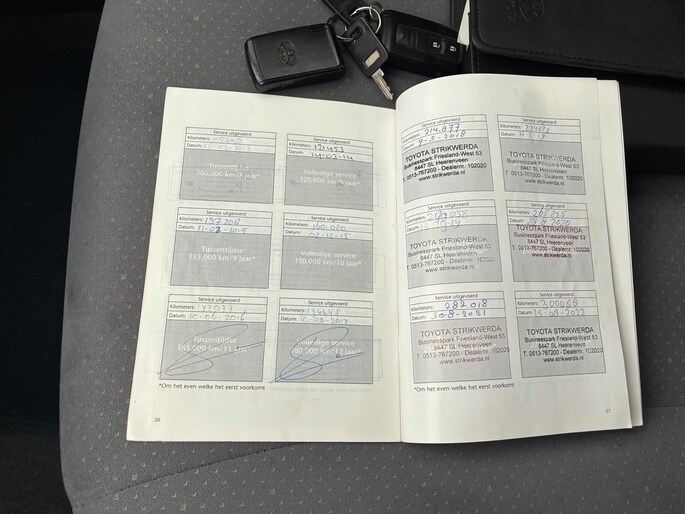 Service uitgevoerd
Kilometers:
Datum:
Tussentijdse
105,000 km/7 jaar*
Service uitgevoerd
Kilometers: 121453
Datum: 14-03-14
Volledige service
120,000 km/8 jaar*
Service uitgevoerd
Kilometers: 137208
Datum:
Tussentijdse
135,000 km/9 jaar*
Service uitgevoerd
Kilometers: 160.020
Datum:
Volledige service
150,000 km/10 jaar*
Service uitgevoerd
Kilometers:
Datum: 10-06-2016
Tussentijdse
Service uitgevoerd
Kilometers:
Datum:
Volledige service
*Om het even welke het eerst voorkomt
26
Service uitgevoerd
Kilometers: 214.877
Datum:
TOYOTA STRIKWERDA
Businesspark Friesland-West 53
8447 SL Heerenveen
T. 0513-767200 - Dealernr. 102020
www.strikwerda.nl
Service uitgevoerd
Kilometers:
Datum:
TOYOTA STRIKWERDA
Businesspark Friesland-West 53
8447 SL Heerenveen
T. 0513-767200 - Dealernr. 102020
www.strikwerda.nl
Service uitgevoerd
Kilometers:
Datum:
TOYOTA STRIKWERDA
Businesspark Friesland-West 53
8447 SL Heerenveen
T. 0513-767200 - Dealernr. 102020
www.strikwerda.nl
Service uitgevoerd
Kilometers:
Datum: 28-8-2020
TOYOTA STRIKWERDA
Businesspark Friesland-West 53
8447 SL Heerenveen
T. 0513-767200 - Dealernr. 102020
www.strikwerda.nl
Service uitgevoerd
Kilometers: 282 018
Datum: 30-8-2021
TOYOTA STRIKWERDA
Businesspark Friesland-West 53
8447 SL Heerenveen
T. 0513-767200 - Dealernr. 102020
www.strikwerda.nl
Service uitgevoerd
Kilometers:
Datum: 15-09-2022
TOYOTA STRIKWERDA
Businesspark Friesland-West 53
8447 SL Heerenveen
T. 0513-767200 - Dealernr. 102020
www.strikwerda.nl
*Om het even welke het eerst voorkomt
27